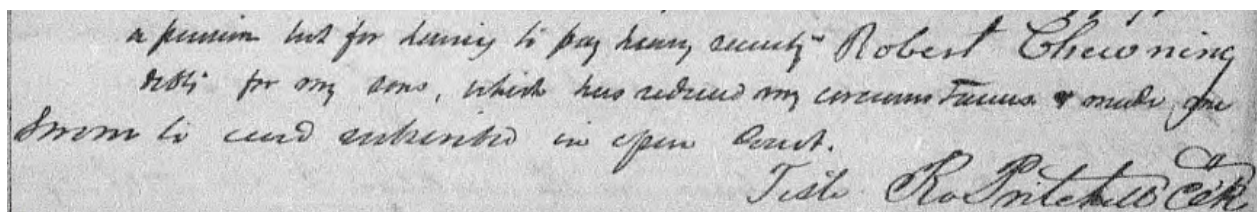 a pension but for having to pay heavy security Robert Chewning
debts for my sons, which has reduced my circumstances & made me
Sworn to and subscribed in open Court.
Teste Ro Pritchett Clk